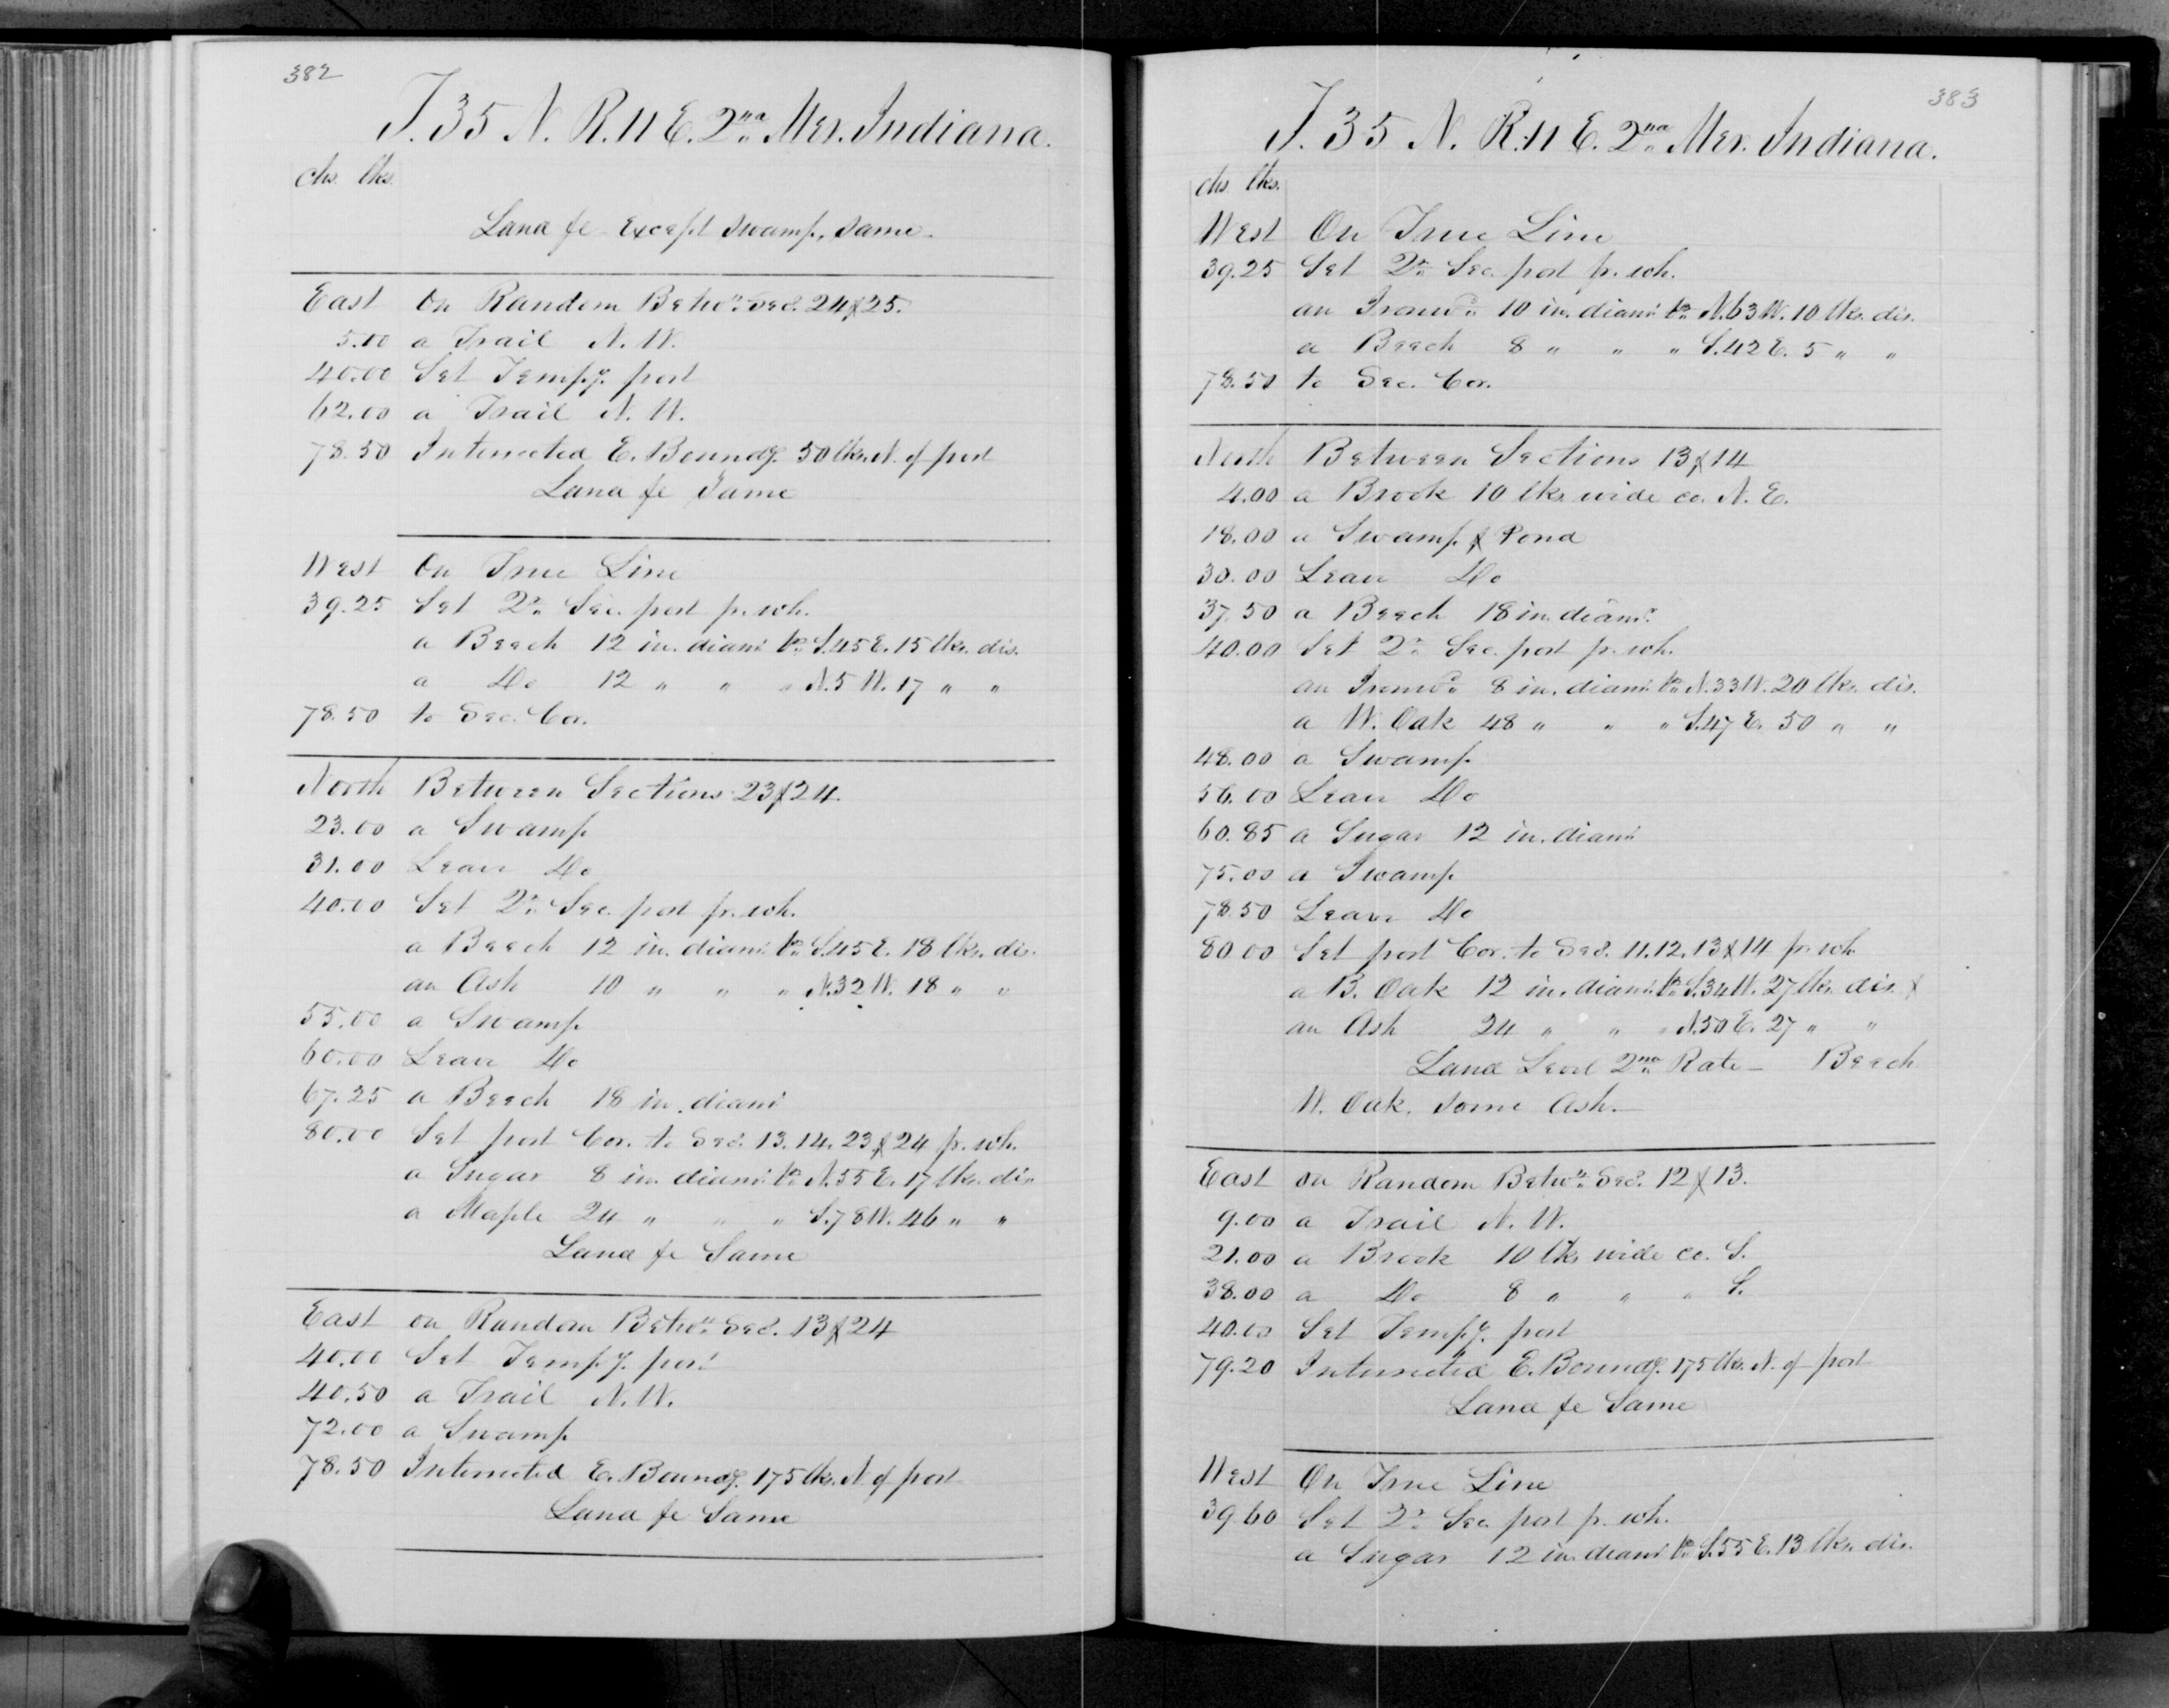 382
T. 35 N. R. 11 E. 2nd Mer. Indiana.
chs. lks.
Land &c Except swamp, same.
East On Random Betwn Secs. 24 & 25.
5.00 a Trail N. W.
40.00 Set Temp.y. post
62.00 a Trail N. W.
78.50 Intersected E. Boundy. 50 lks. N. of post
Land &c Same
West On True Line
39.25 Set Qr. Sec. post fr. wh.
a Beech 12 in. diamr. brs. S. 45 E. 15 lks. dis.
a Do 12 " " " N. 5 W. 17 " "
78.50 to Sec. Cor.
North Between Sections 23 & 24.
23.00 a Swamp
31.00 Leave Do
40.00 Set Qr. Sec. post fr. wh.
a Beech 12 in. diamr. brs. S. 45 E. 18 lks. dis.
an Ash 10 " " " N. 32 W. 18 " "
55.00 a Swamp
60.00 Leave Do
67.25 a Beech 18 in. diamr
80.00 Set post Cor. to Secs. 13. 14. 23 & 24 fr. wh.
a Sugar 8 in. diamr. brs. N. 55 E. 17 lks. dis
a Maple 24 " " " S. 78 W. 46 " "
Land &c Same
East on Random Betwn Secs. 13 & 24
40.00 Set Temp.y. post
40.50 a Trail N. W.
72.00 a Swamp
78.50 Intersected E. Boundy. 175 lks. N. of post
Land &c Same
383
T. 35 N. R. 11 E. 2nd Mer. Indiana.
chs. lks.
West On True Line
39.25 Set Qr. Sec. post fr. wh.
an Ironwd. 10 in. diamr. brs. N. 63 W. 10 lks. dis.
a Beech 8 " " " S. 42 E. 5 " "
78.50 to Sec. Cor.
North Between Sections 13 & 14
4.00 a Brook 10 lks. wide co. N. E.
18.00 a Swamp & Pond
30.00 Leave Do
37.50 a Beech 18 in. diamr.
40.00 Set Qr. Sec. post fr. wh.
an Ironwd. 8 in. diamr. brs. N. 33 W. 20 lks. dis.
a W. Oak 48 " " " S. 47 E. 50 " "
48.00 a Swamp
56.00 Leave Do
60.85 a Sugar 12 in. diamr
75.00 a Swamp
78.50 Leave Do
80.00 Set post Cor. to Secs. 11. 12. 13 & 14 fr. wh
a B. Oak 12 in. diamr. brs. S. 34 W. 27 lks. dis. &
an Ash 24 " " " N. 50 E. 27 " "
Land Level 2nd Rate — Beech
W. Oak. some Ash.—
East on Random Betwn Secs. 12 & 13.
9.00 a Trail N. W.
21.00 a Brook 10 lks wide co. S.
38.00 a Do 8 " " " S.
40.00 Set Temp.y. post
79.20 Intersected E. Boundy. 175 lks. N. of post
Land &c Same
West On True Line
39.60 Set Qr. Sec. post fr. wh.
a Sugar 12 in. diamr brs. S. 55 E. 13 lks. dis.